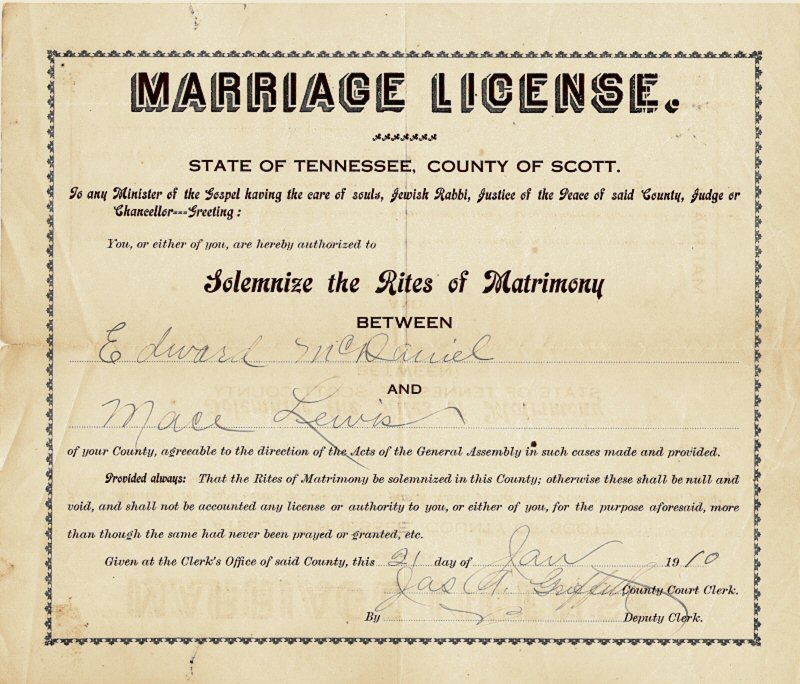 MARRIAGE LICENSE.
STATE OF TENNESSEE, COUNTY OF SCOTT.
To any Minister of the Gospel having the care of souls, Jewish Rabbi, Justice of the Peace of said County, Judge or
Chancellor---Greeting:
You, or either of you, are hereby authorized to
Solemnize the Rites of Matrimony
BETWEEN
Edward McDaniel
AND
Mace Lewis
of your County, agreeable to the direction of the Acts of the General Assembly in such cases made and provided.
Provided always: That the Rites of Matrimony be solemnized in this County; otherwise these shall be null and
void, and shall not be accounted any license or authority to you, or either of you, for the purpose aforesaid, more
than though the same had never been prayed or granted, etc.
Given at the Clerk's Office of said County, this 21 day of Jan 1910
Jas A. Griffith County Court Clerk.
By Deputy Clerk.